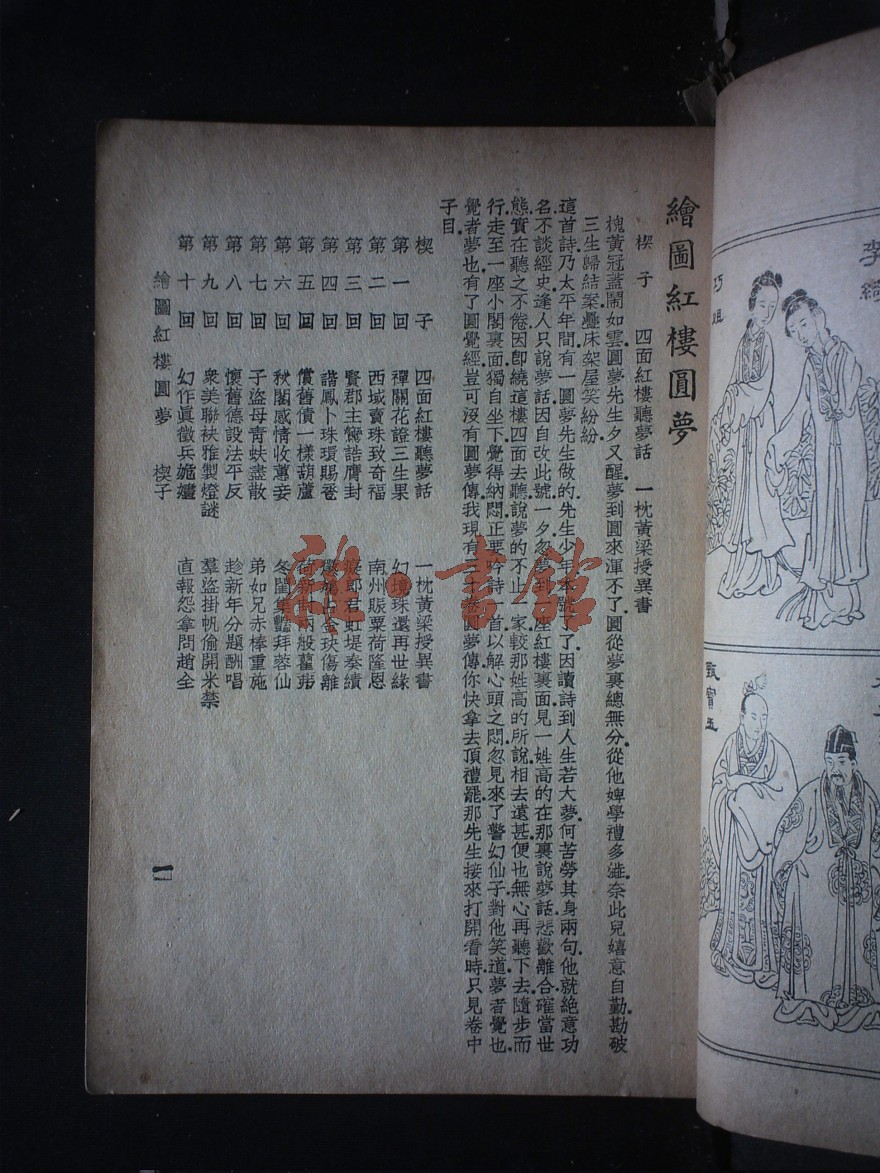 繪圖紅樓圓夢
楔子　四面紅樓聽夢話　一枕黃梁授異書
槐黃冠蓋鬧如雲圓夢先生夕又醒夢到圓來渾不了圓從夢裏總無分從他婢學禮多雖奈此兒嬉意自勤勘破
三生歸結案疊床架屋笑紛紛
這首詩乃太平年間有一圓夢先生做的先生少年本號了了因讀詩到人生若大夢何苦勞其身兩句他就絕意功
名不談經史逢人只說夢話因自改此號一夕忽夢到一座紅樓裏面見一姓高的在那裏說夢話悲歡離合確當世
態實在聽之不倦因卽繞這樓四面去聽說夢的不止一家較那姓高的所說相去遠甚便也無心再聽下去隨步而
行走至一座小閣裏面獨自坐下覺得納悶正要吟詩一首以解心頭之悶忽見來了警幻仙子對他笑道夢者覺也
覺者夢也有了圓覺經豈可沒有圓夢傳我現有三十卷圓夢傳你快拿去頂禮罷那先生接來打開看時只見卷中
子目
楔子　四面紅樓聽夢話　一枕黃梁授異書
第一回　禪關花證三生果　幻境珠還再世緣
第二回　西域賣珠致奇福　南州賑粟荷隆恩
第三回　賢郡主鸞誥膺封　郎君虹堤奏績
第四回　諧鳳卜珠環賜爸　龍占金玦傷離
第五回　償舊債一樣葫蘆　荷新 兩般藿
第六回　秋閣感情收蕙妾　冬閨集豔拜蓉仙
第七回　子盜母靑蚨盡散　弟如兄赤棒重施
第八回　懷舊德設法平反　趁新年分題酬唱
第九回　衆美聯袂雅製燈謎　羣盜掛帆偷開米禁
第十回　幻作眞徵兵姽嫿　直報怨拿問趙全
繪圖紅樓圓夢　楔子
一
李綺
巧姐
甄寶玉
雜·書館